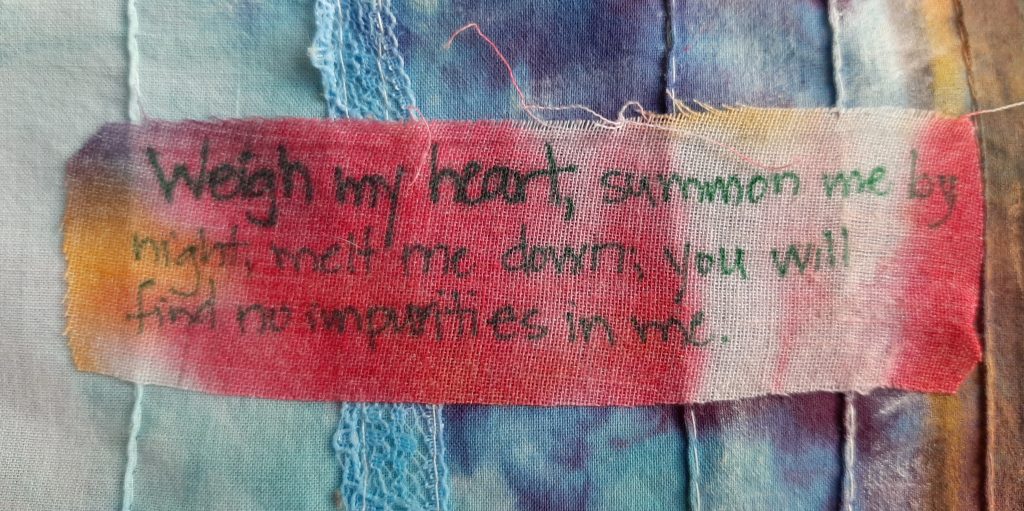 Weigh my heart, summon me by
night, melt me down; you will
find no impurities in me.